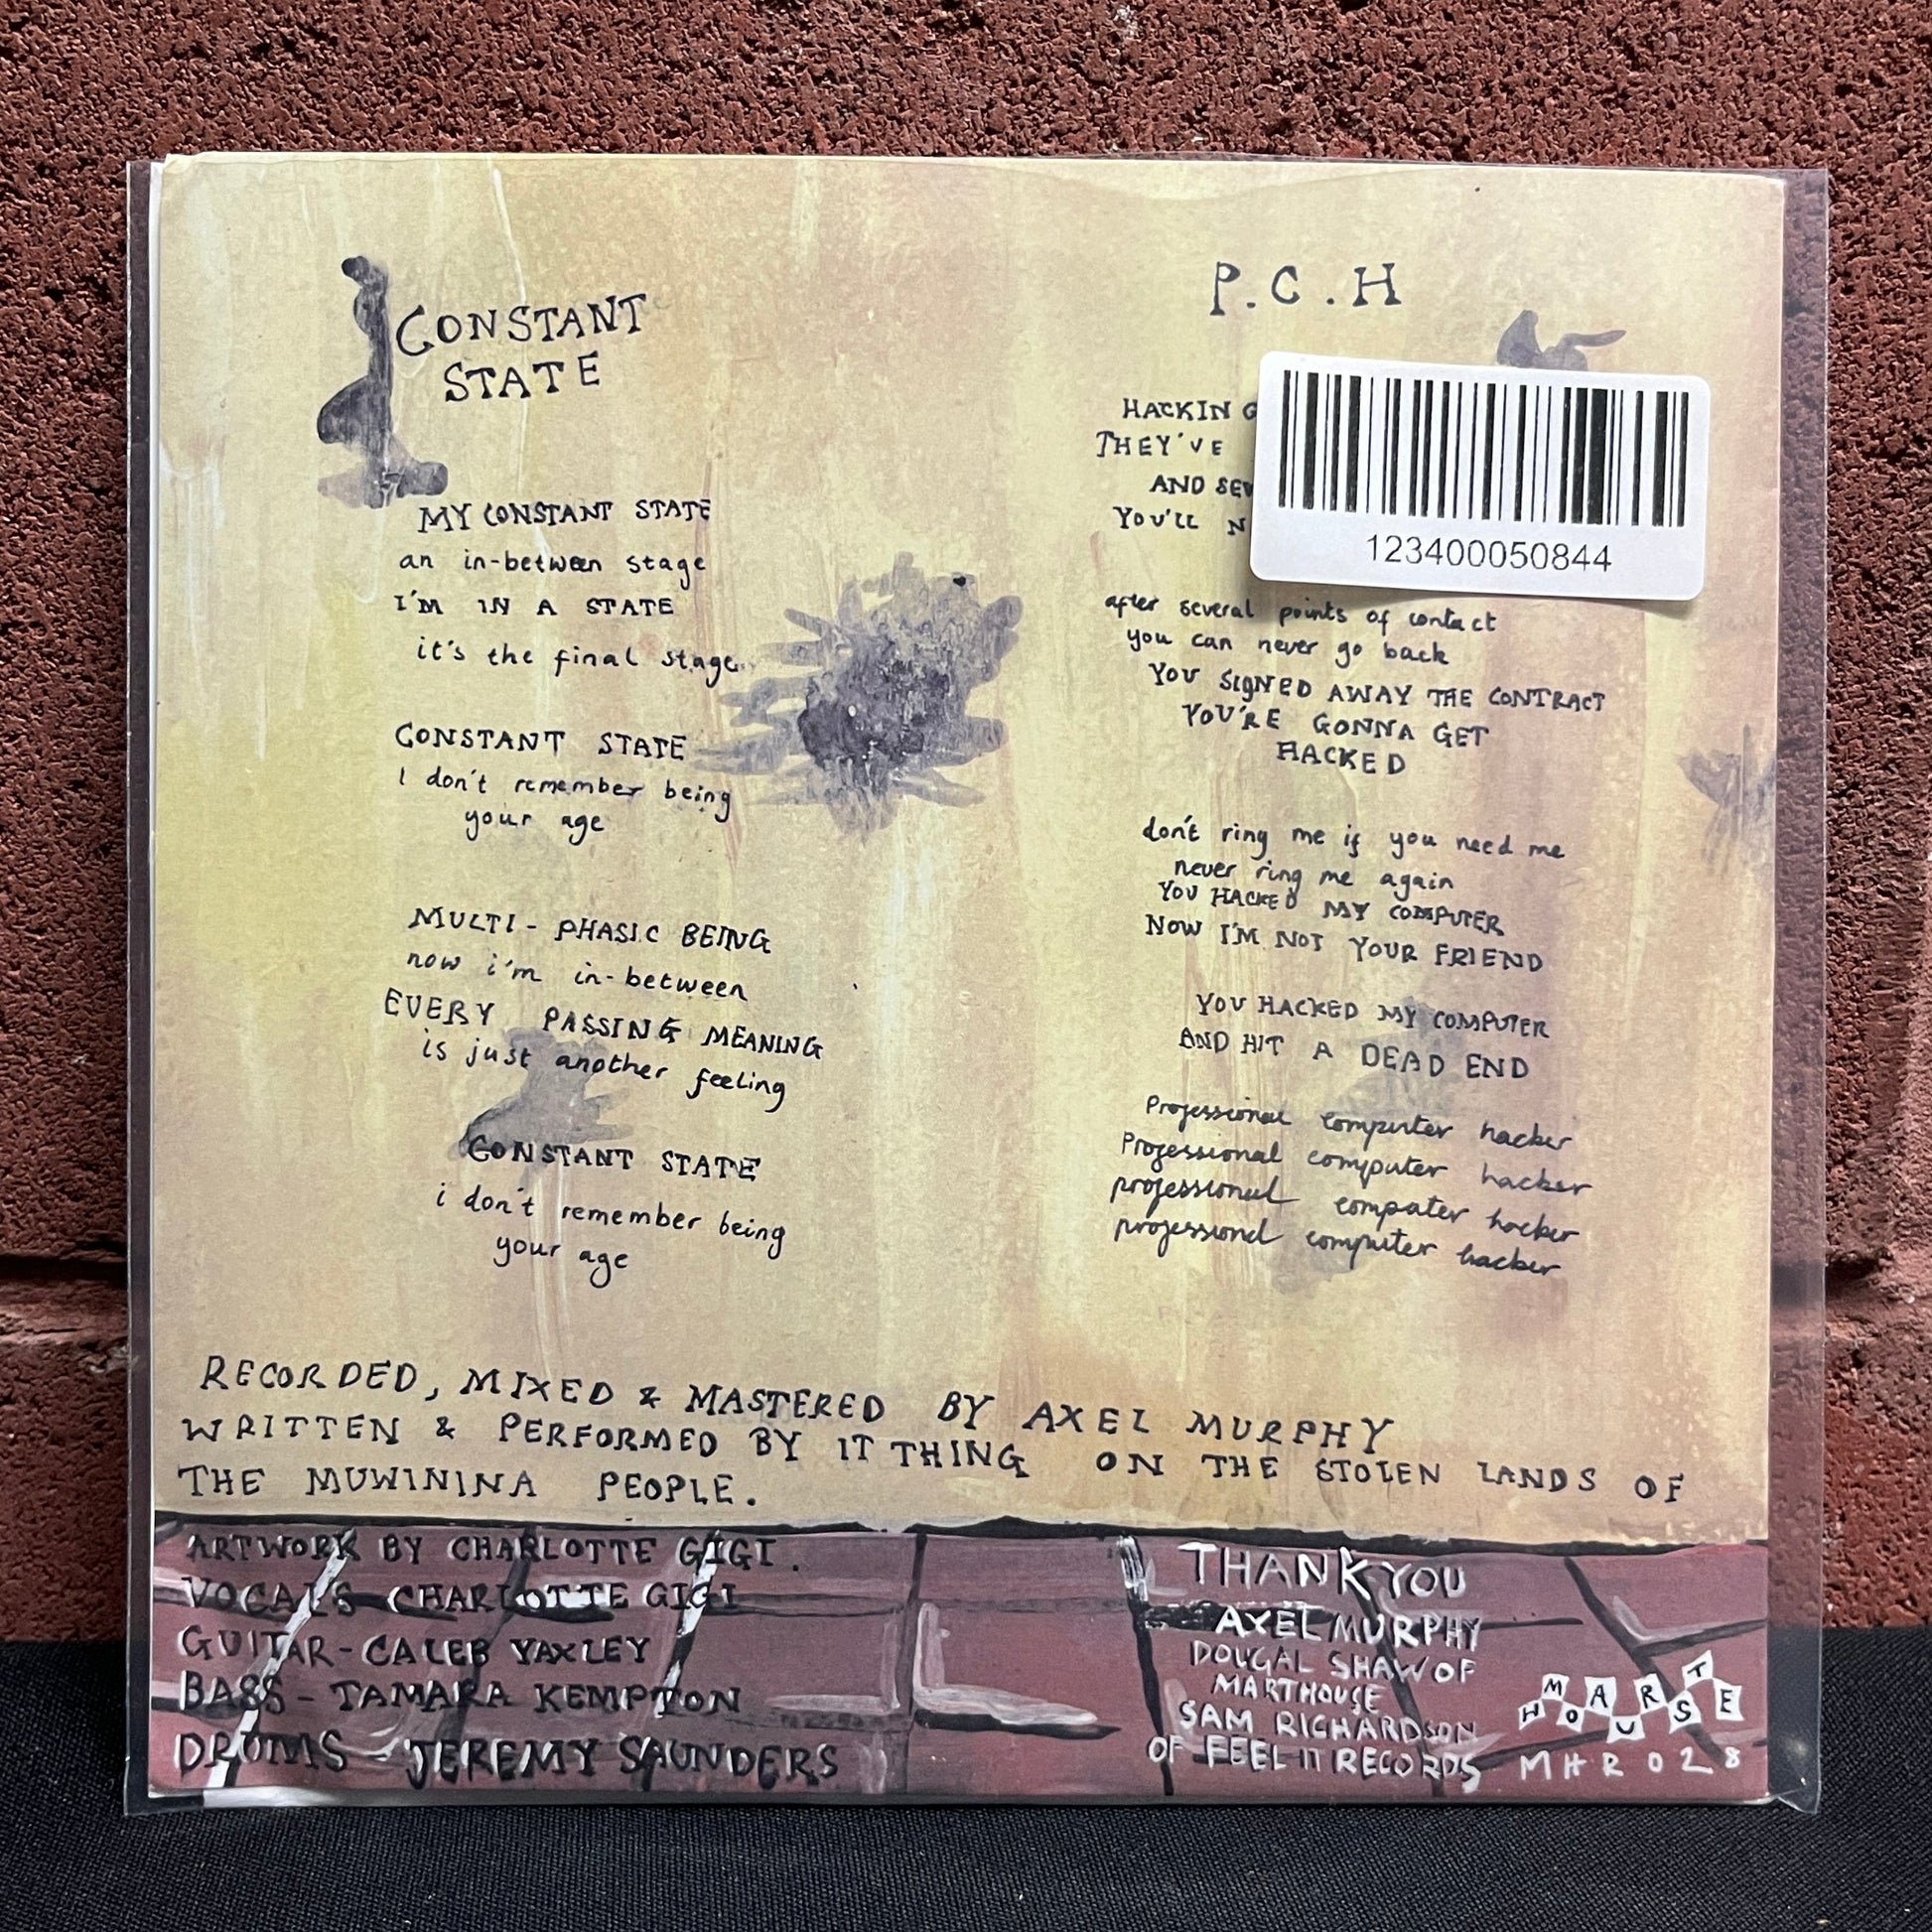 CONSTANT
STATE
MY CONSTANT STATE
an in-between stage
I'M IN A STATE
it's the final stage
CONSTANT STATE
I don't remember being
your age
MULTI-PHASIC BEING
now i'm in-between
EVERY PASSING MEANING
is just another feeling
CONSTANT STATE
i don't remember being
your age
P.C.H
HACKIN
THEY'VE
AND
YOU'LL
123400050844
after several points of contact
you can never go back
YOU SIGNED AWAY THE CONTRACT
YOU'RE GONNA GET
HACKED
don't ring me if you need me
never ring me again
YOU HACKED MY COMPUTER
NOW I'M NOT YOUR FRIEND
YOU HACKED MY COMPUTER
AND HIT A DEAD END
Professional computer hacker
Professional computer hacker
professional computer hacker
professional computer hacker
RECORDED, MIXED & MASTERED BY AXEL MURPHY
WRITTEN & PERFORMED BY IT THING ON THE STOLEN LANDS OF
THE MUWININA PEOPLE.
ARTWORK BY CHARLOTTE GIGI.
VOCALS CHARLOTTE GIGI
GUITAR-CALEB YAXLEY
BASS-TAMARA KEMPTON
DRUMS-JEREMY SAUNDERS
THANK YOU
AXEL MURPHY
DOUGAL SHAW OF
MARTHOUSE
SAM RICHARDSON
OF FEEL IT RECORDS
MARTHOUSE
MHR028